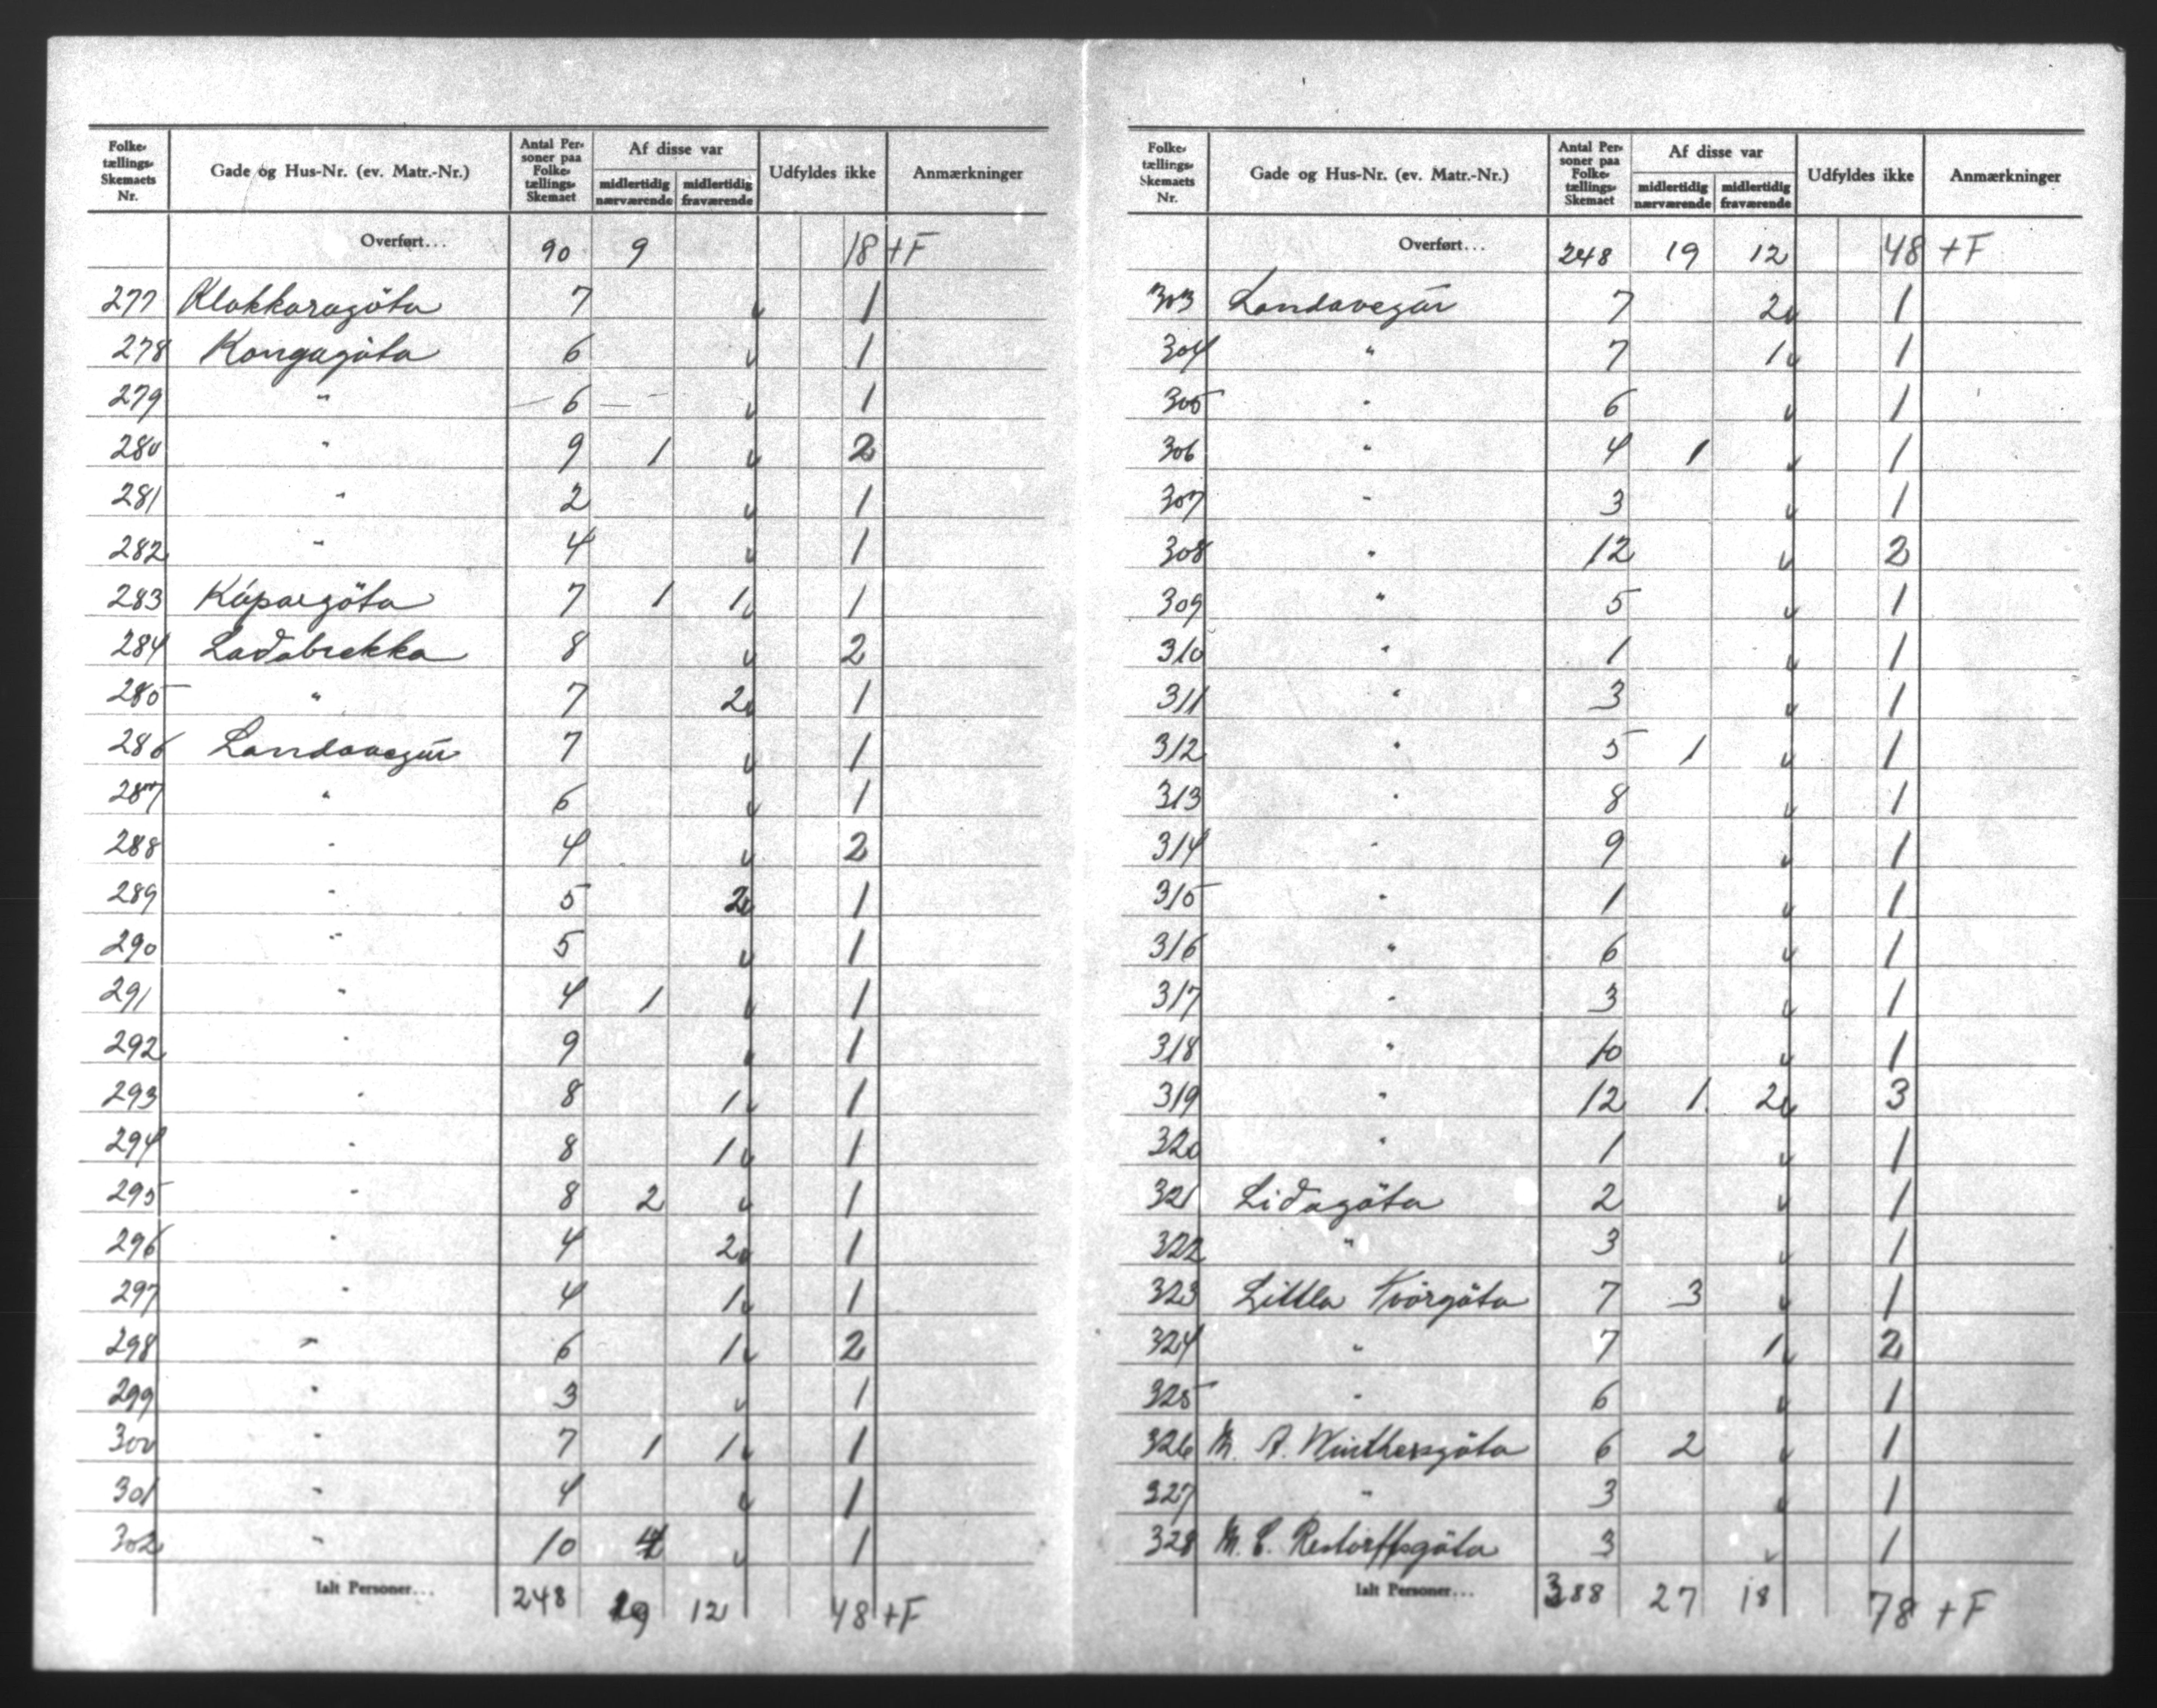 Folketællings-Skemaets Nr. Gade og Hus-Nr. (ev. Matr.-Nr.) Antal Personer paa Folketællings-Skemaet Af disse var midlertidig nærværende midlertidig fraværende Udfyldes ikke Anmærkninger
Overført... 90 9 18 +F
277 Klokkaragöta 7 v 1
278 Kongagöta 6 v 1
279 " 6 v 1
280 " 9 1 v 2
281 " 2 v 1
282 " 4 v 1
283 Kópargöta 7 1 1v 1
284 Ladabrekka 8 v 2
285 " 7 2v 1
286 Landavegur 7 v 1
287 " 6 v 1
288 " 4 v 2
289 " 5 2v 1
290 " 5 v 1
291 " 4 1 v 1
292 " 9 v 1
293 " 8 1v 1
294 " 8 1v 1
295 " 8 2 v 1
296 " 4 2v 1
297 " 4 1v 1
298 " 6 1v 2
299 " 3 v 1
300 " 7 1 1v 1
301 " 4 v 1
302 " 10 4 v 1
Ialt Personer... 248 19 12 48 +F
Folketællings-Skemaets Nr. Gade og Hus-Nr. (ev. Matr.-Nr.) Antal Personer paa Folketællings-Skemaet Af disse var midlertidig nærværende midlertidig fraværende Udfyldes ikke Anmærkninger
Overført... 248 19 12 48 +F
303 Landavegur 7 2v 1
304 " 7 1v 1
305 " 6 v 1
306 " 4 1 v 1
307 " 3 v 1
308 " 12 v 2
309 " 5 v 1
310 " 1 v 1
311 " 3 v 1
312 " 5 1 v 1
313 " 8 v 1
314 " 9 v 1
315 " 1 v 1
316 " 6 v 1
317 " 3 v 1
318 " 10 v 1
319 " 12 1 2v 3
320 " 1 v 1
321 Lidagöta 2 v 1
322 " 3 v 1
323 Littla Kvörgöta 7 3 v 1
324 " 7 1v 2
325 " 6 v 1
326 M. A. Winthersgöta 6 2 v 1
327 " 3 v 1
328 M. C. Restorffsgöta 3 v 1
Ialt Personer... 388 27 18 78 +F